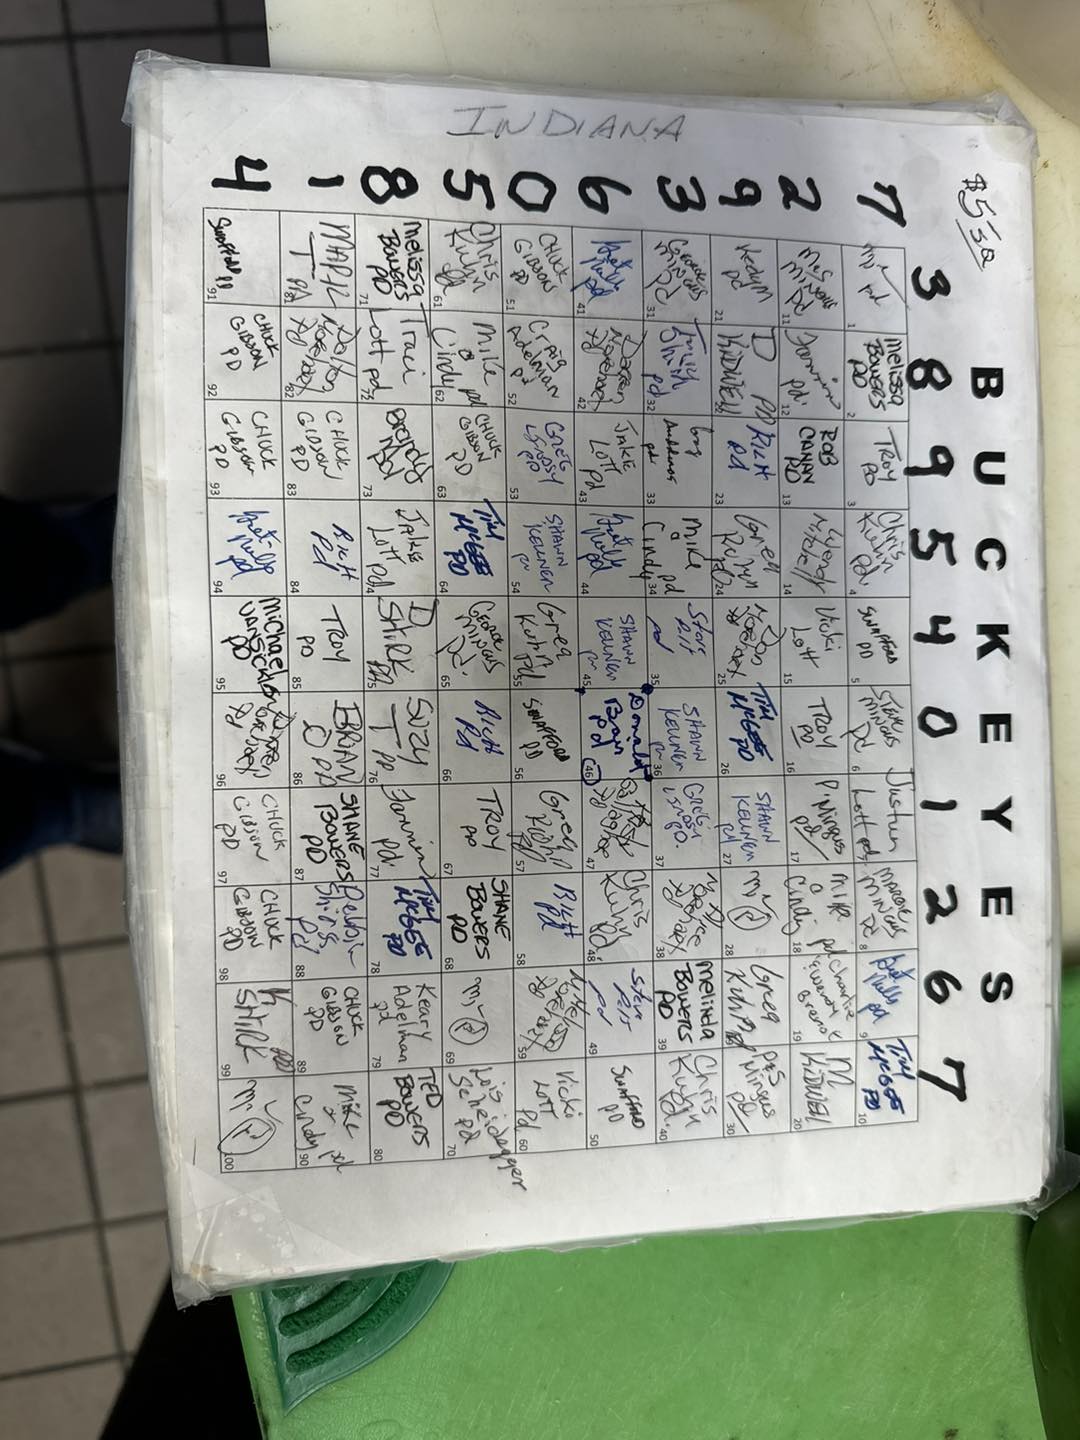 $5/SQ
BUCKEYES
3 8 9 5 4 0 1 2 6 7
INDIANA
7
1
Melissa
BOWERS
PD
2
TROY
PD
3
Chris
Kuhn
Pd.
4
SWAFFORD
PD
5
STEVE
MINGUS
Pd
6
Justin
Lott pd.
7
MARGIE
MINGUS
Pd
8
pd
9
TIM
McGEE
PD
10
2
MRS
MINGUS
Pd
11
Jannin
pd.
12
ROB
CANAN
PD
13
14
Vicki
Lott
15
TROY
PD
16
P Mingus
pd
17
MIKE
a
Cindy pd
18
Charlie
Brant
19
M
KIDWELL
20
9
pd
21
D
KIDWELL
PD
22
RICH
Pd
23
Greg
Kuhn
Pd
24
25
TIM
McGEE
PD
26
SHAWN
KELLNER
pd
27
Mr P
28
Greg
Kuhn Pd
29
P&S
Mingus
pd
30
3
GEORGE
MINGUS
Pd
31
pd
32
pd
33
Mike
a
Cindy pd
34
Steve
pd
35
SHAWN
KELLNER
36
GREG
LINDSY
PD.
37
38
Melinda
BOWERS
PD
39
Chris
Kuhn
Pd.
40
6
pd
41
42
JAKE
LOTT
Pd
43
pd
44
SHAWN
KELLNER
45
Donald
Bran
pd
46
47
Chris
Kuhn
Pd.
48
Steve
pd
49
SWAFFORD
PD
50
0
CHUCK
GIBSON
PD
51
Craig
Adelman
pd
52
GREG
LINDSY
PD
53
SHAWN
KELLNER
54
Greg
Kuhn
Pd.
55
SWAFFORD
PD
56
Greg
Kuhn
Pd
57
RICH
Pd
58
59
Vicki
LOTT
Pd.
60
5
Chris
Kuhn
Pd
61
Mike
a
Cindy pd
62
CHUCK
GIBSON
PD
63
TIM
McGEE
PD
64
GEORGE
MINGUS
Pd.
65
RICH
Pd
66
TROY
PD
67
SHANE
BOWERS
PD
68
Mr P
69
Lois
Scheidegger
pd
70
8
Melissa
BOWERS
PD
71
Traci
Lott pd
72
BRANDY
N pd
73
JAKE
LOTT pd
74
D
SHIRK
PD
75
SUZY
T PD
76
Jannin
pd.
77
TIM
McGEE
PD
78
Keary
Adelman
pd
79
TED
BOWERS
PD
80
1
MARK
T PD
81
82
CHUCK
GIBSON
PD
83
RICH
Pd
84
TROY
PD
85
BRIAN
D PD
86
SHANE
BOWERS
PD
87
Debbie
pd
88
CHUCK
GIBSON
PD
89
Mike
a
Cindy pd
90
4
SWAFFORD
PD
91
CHUCK
GIBSON
PD
92
CHUCK
GIBSON
PD
93
pd
94
Michael
VANSICKLE
PD
95
96
CHUCK
GIBSON
PD
97
CHUCK
GIBSON
PD
98
K
SHIRK
PD
99
Mr P
100